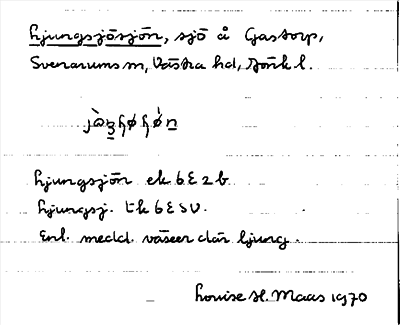 Ljungsjösjön, sjö å Gastorp,
Svenarums sn, Västra hd, Jönk l.
Ljungsjön ek 6E2b
Ljungsj. Tk 6E SV.
Enl. medd. växer där ljung.
Louise H. Maas 1970